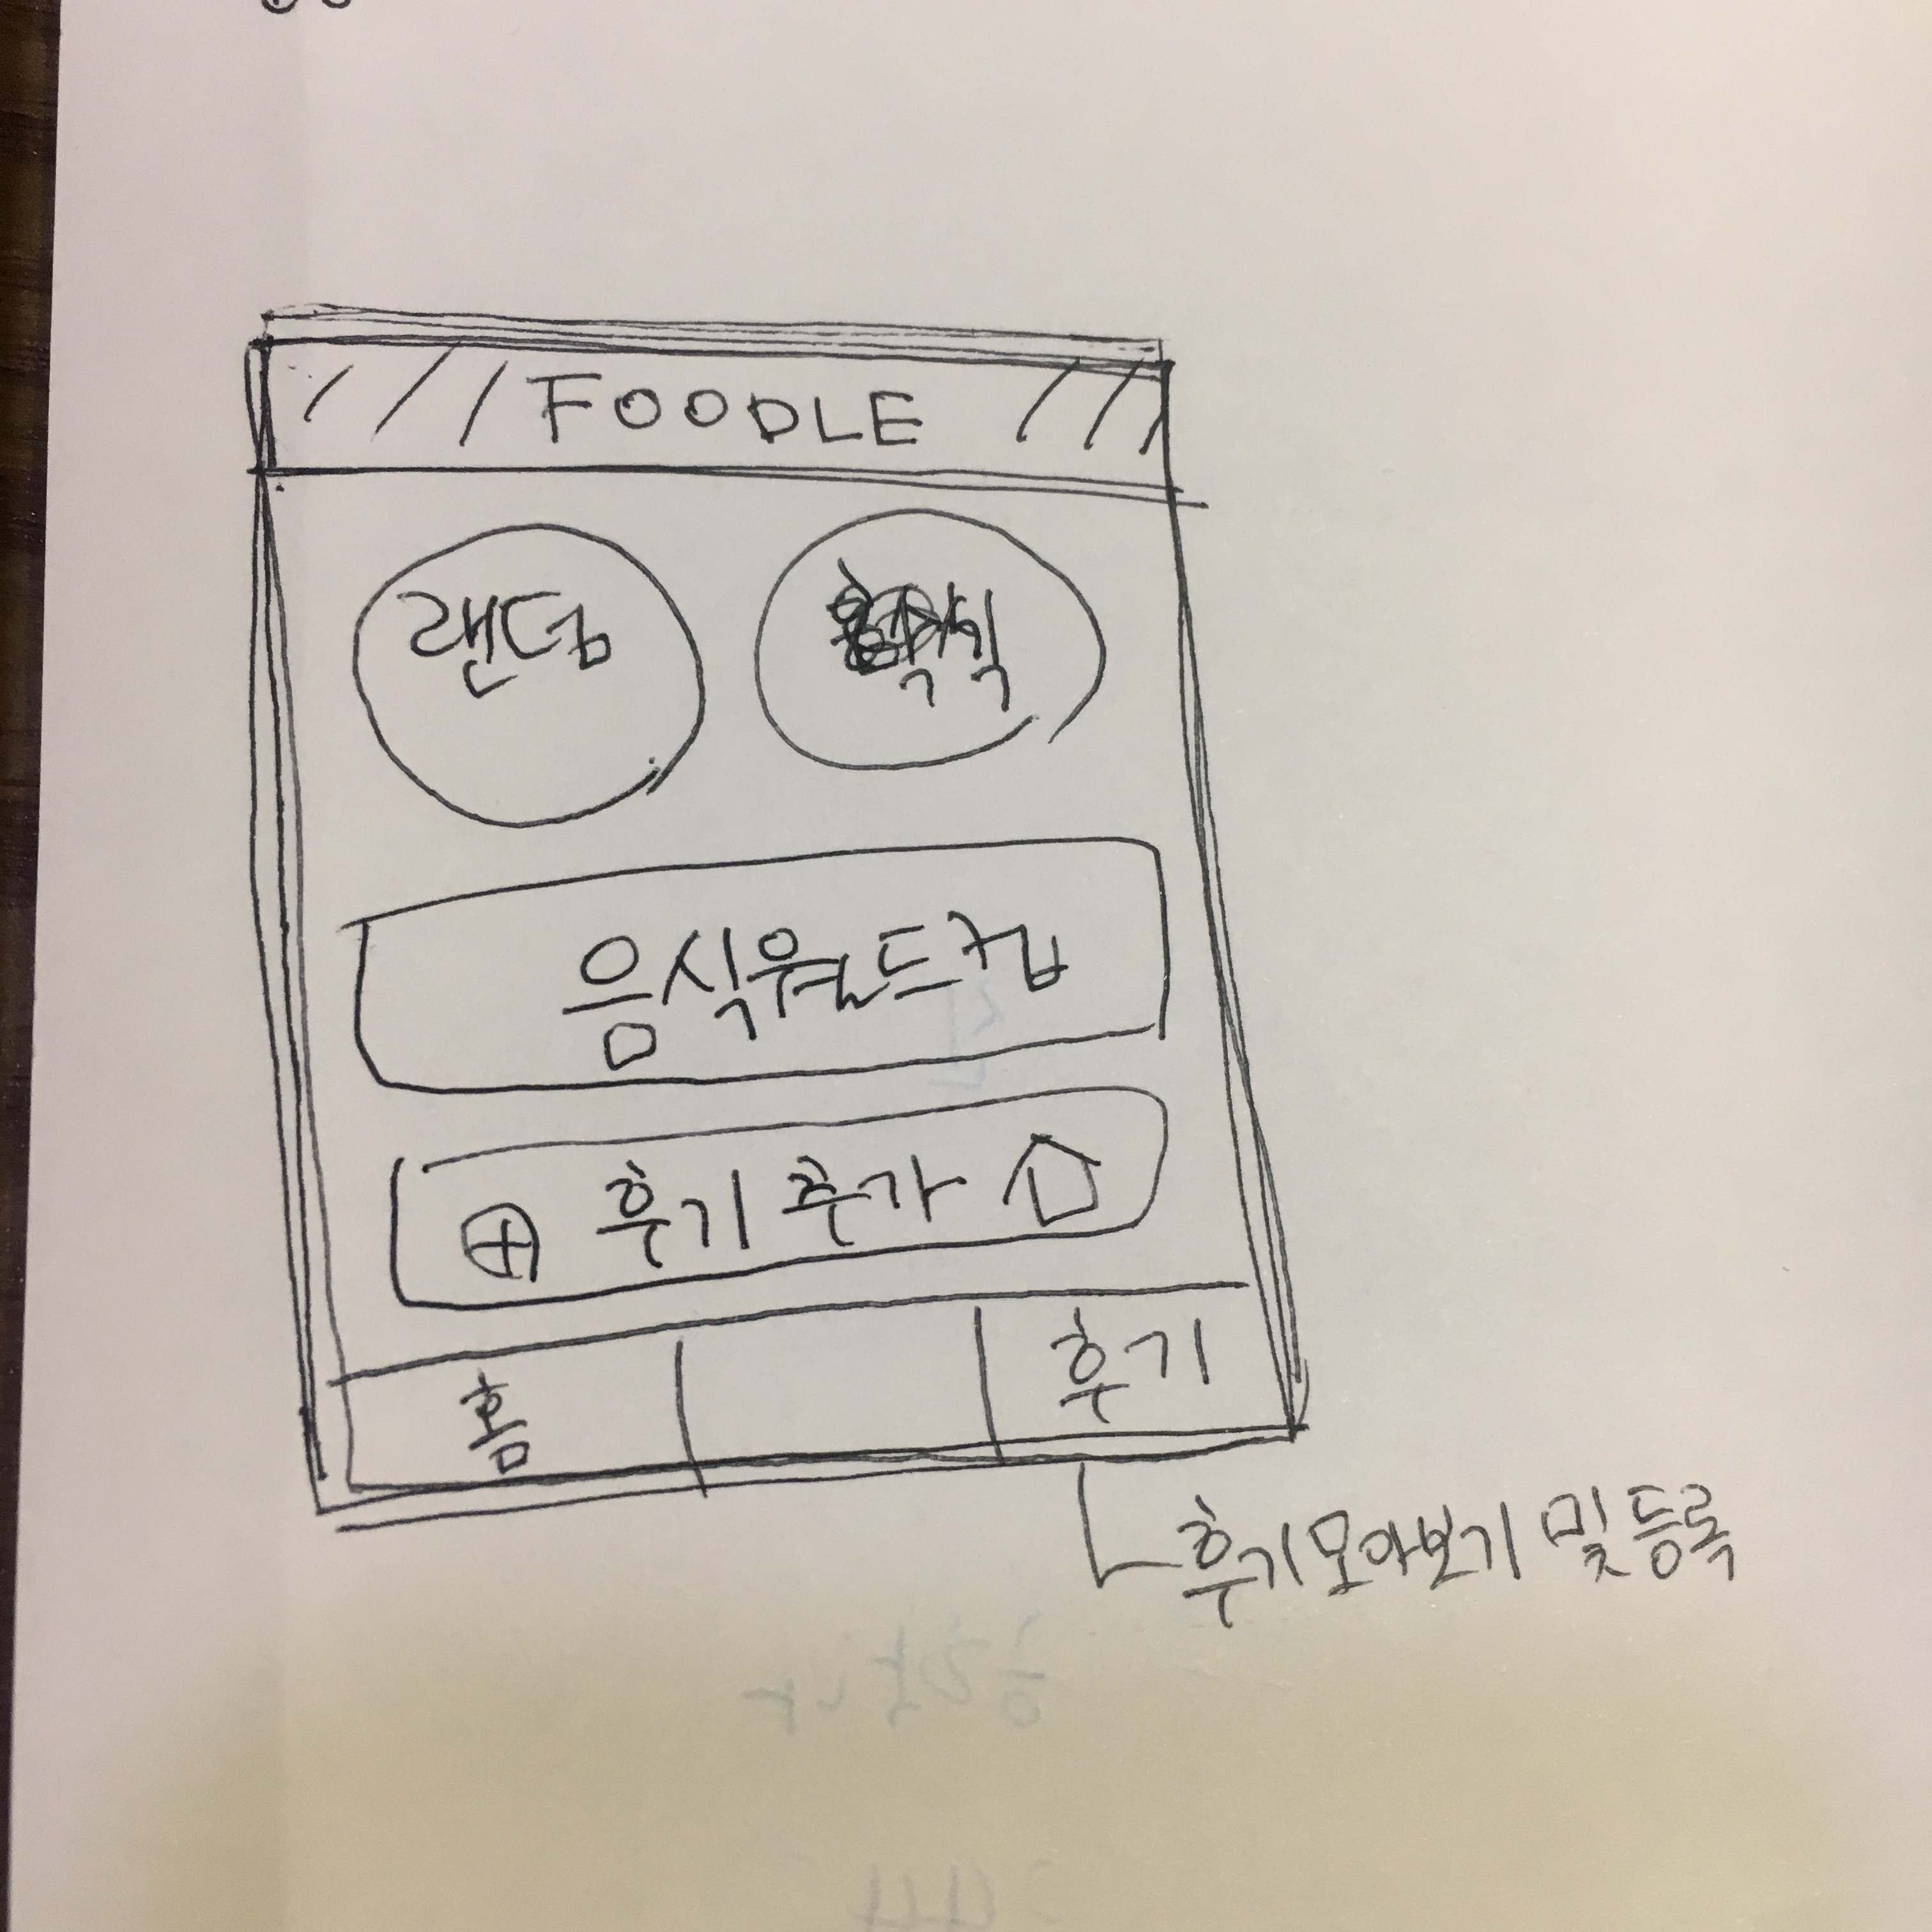 FOODLE
랜덤
음식월드컵
후기 추가
홈
후기
후기 모아보기 및 등록